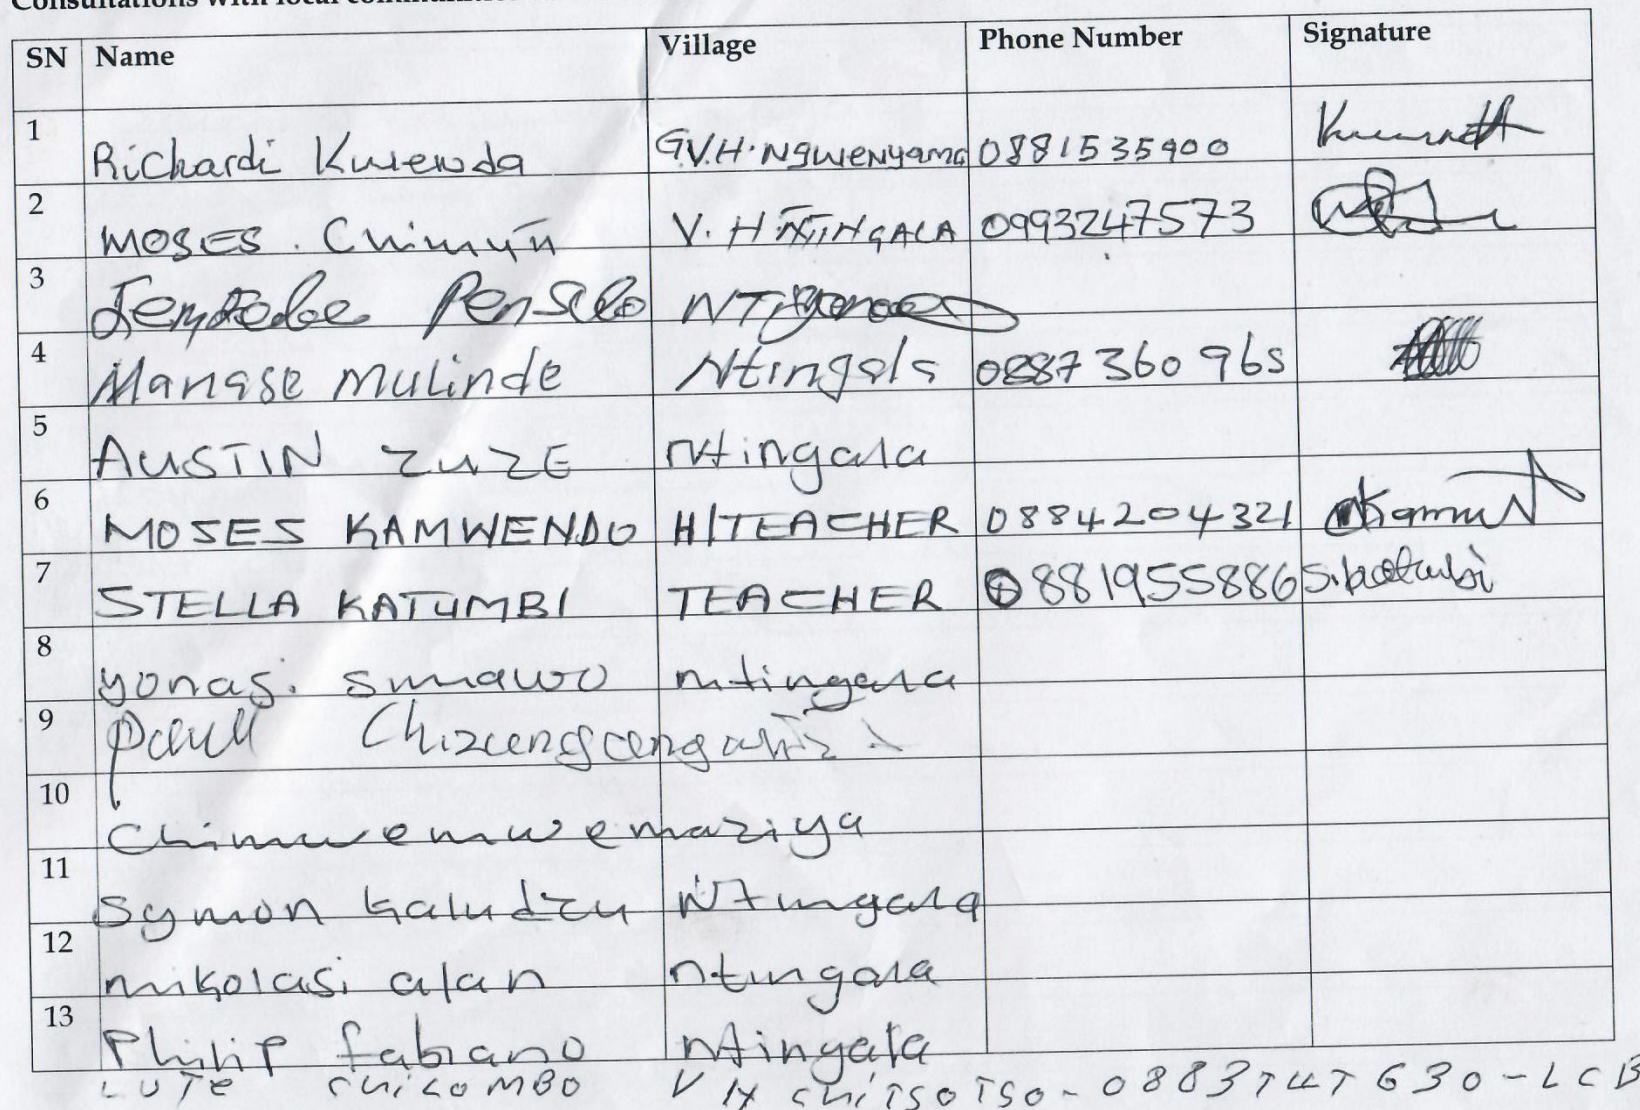 Consultations with local communities
SN Name Village Phone Number Signature
1 Richardi Kwenda G.V.H. Ngwenyama 0881535900
2 MOSES . Chimyu V. H NTINGALA 0993247573
3
4 Manase Mulinde Ntingala 0887 360 965
5 AUSTIN ZUZE Ntingala
6 MOSES KAMWENDO H/TEACHER 0884204321
7 STELLA KATUMBI TEACHER 0881955886 S.katumbi
8 yonas. smawo ntingala
9 Paull
10 Chimwemwe maziya
11 Symon kaludzu Ntingala
12 mikolasi alan ntingala
13 Philip fabiano ntingala
LUTE CHILOMBO V H CHITSOTSO - 0883747630 - LCB